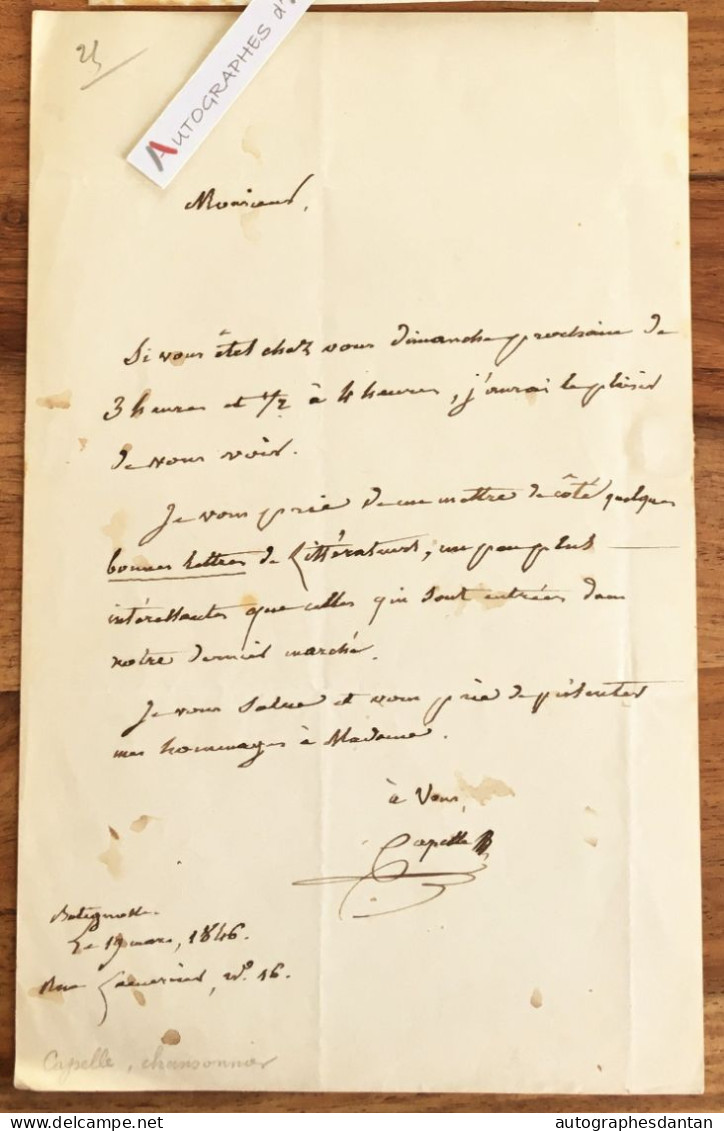 25
AUTOGRAPHES d'
Monsieur,
Si vous êtes chez vous dimanche prochain de
3 heures et 1/2 à 4 heures, j'aurai le plaisir
de vous voir.
Je vous prie de me mettre de côté quelques
bonnes lettres de Littérateurs, un peu plus
intéressantes que celles qui sont entrées dans
notre dernier marché.
Je vous salue et vous prie de présenter
mes hommages à Madame.
à Vous,
Capelle
Batignolles.
Le 19 mars, 1846.
Rue Lemercier, n° 16.
Capelle, chansonnier
delcampe.net
autographesdantan